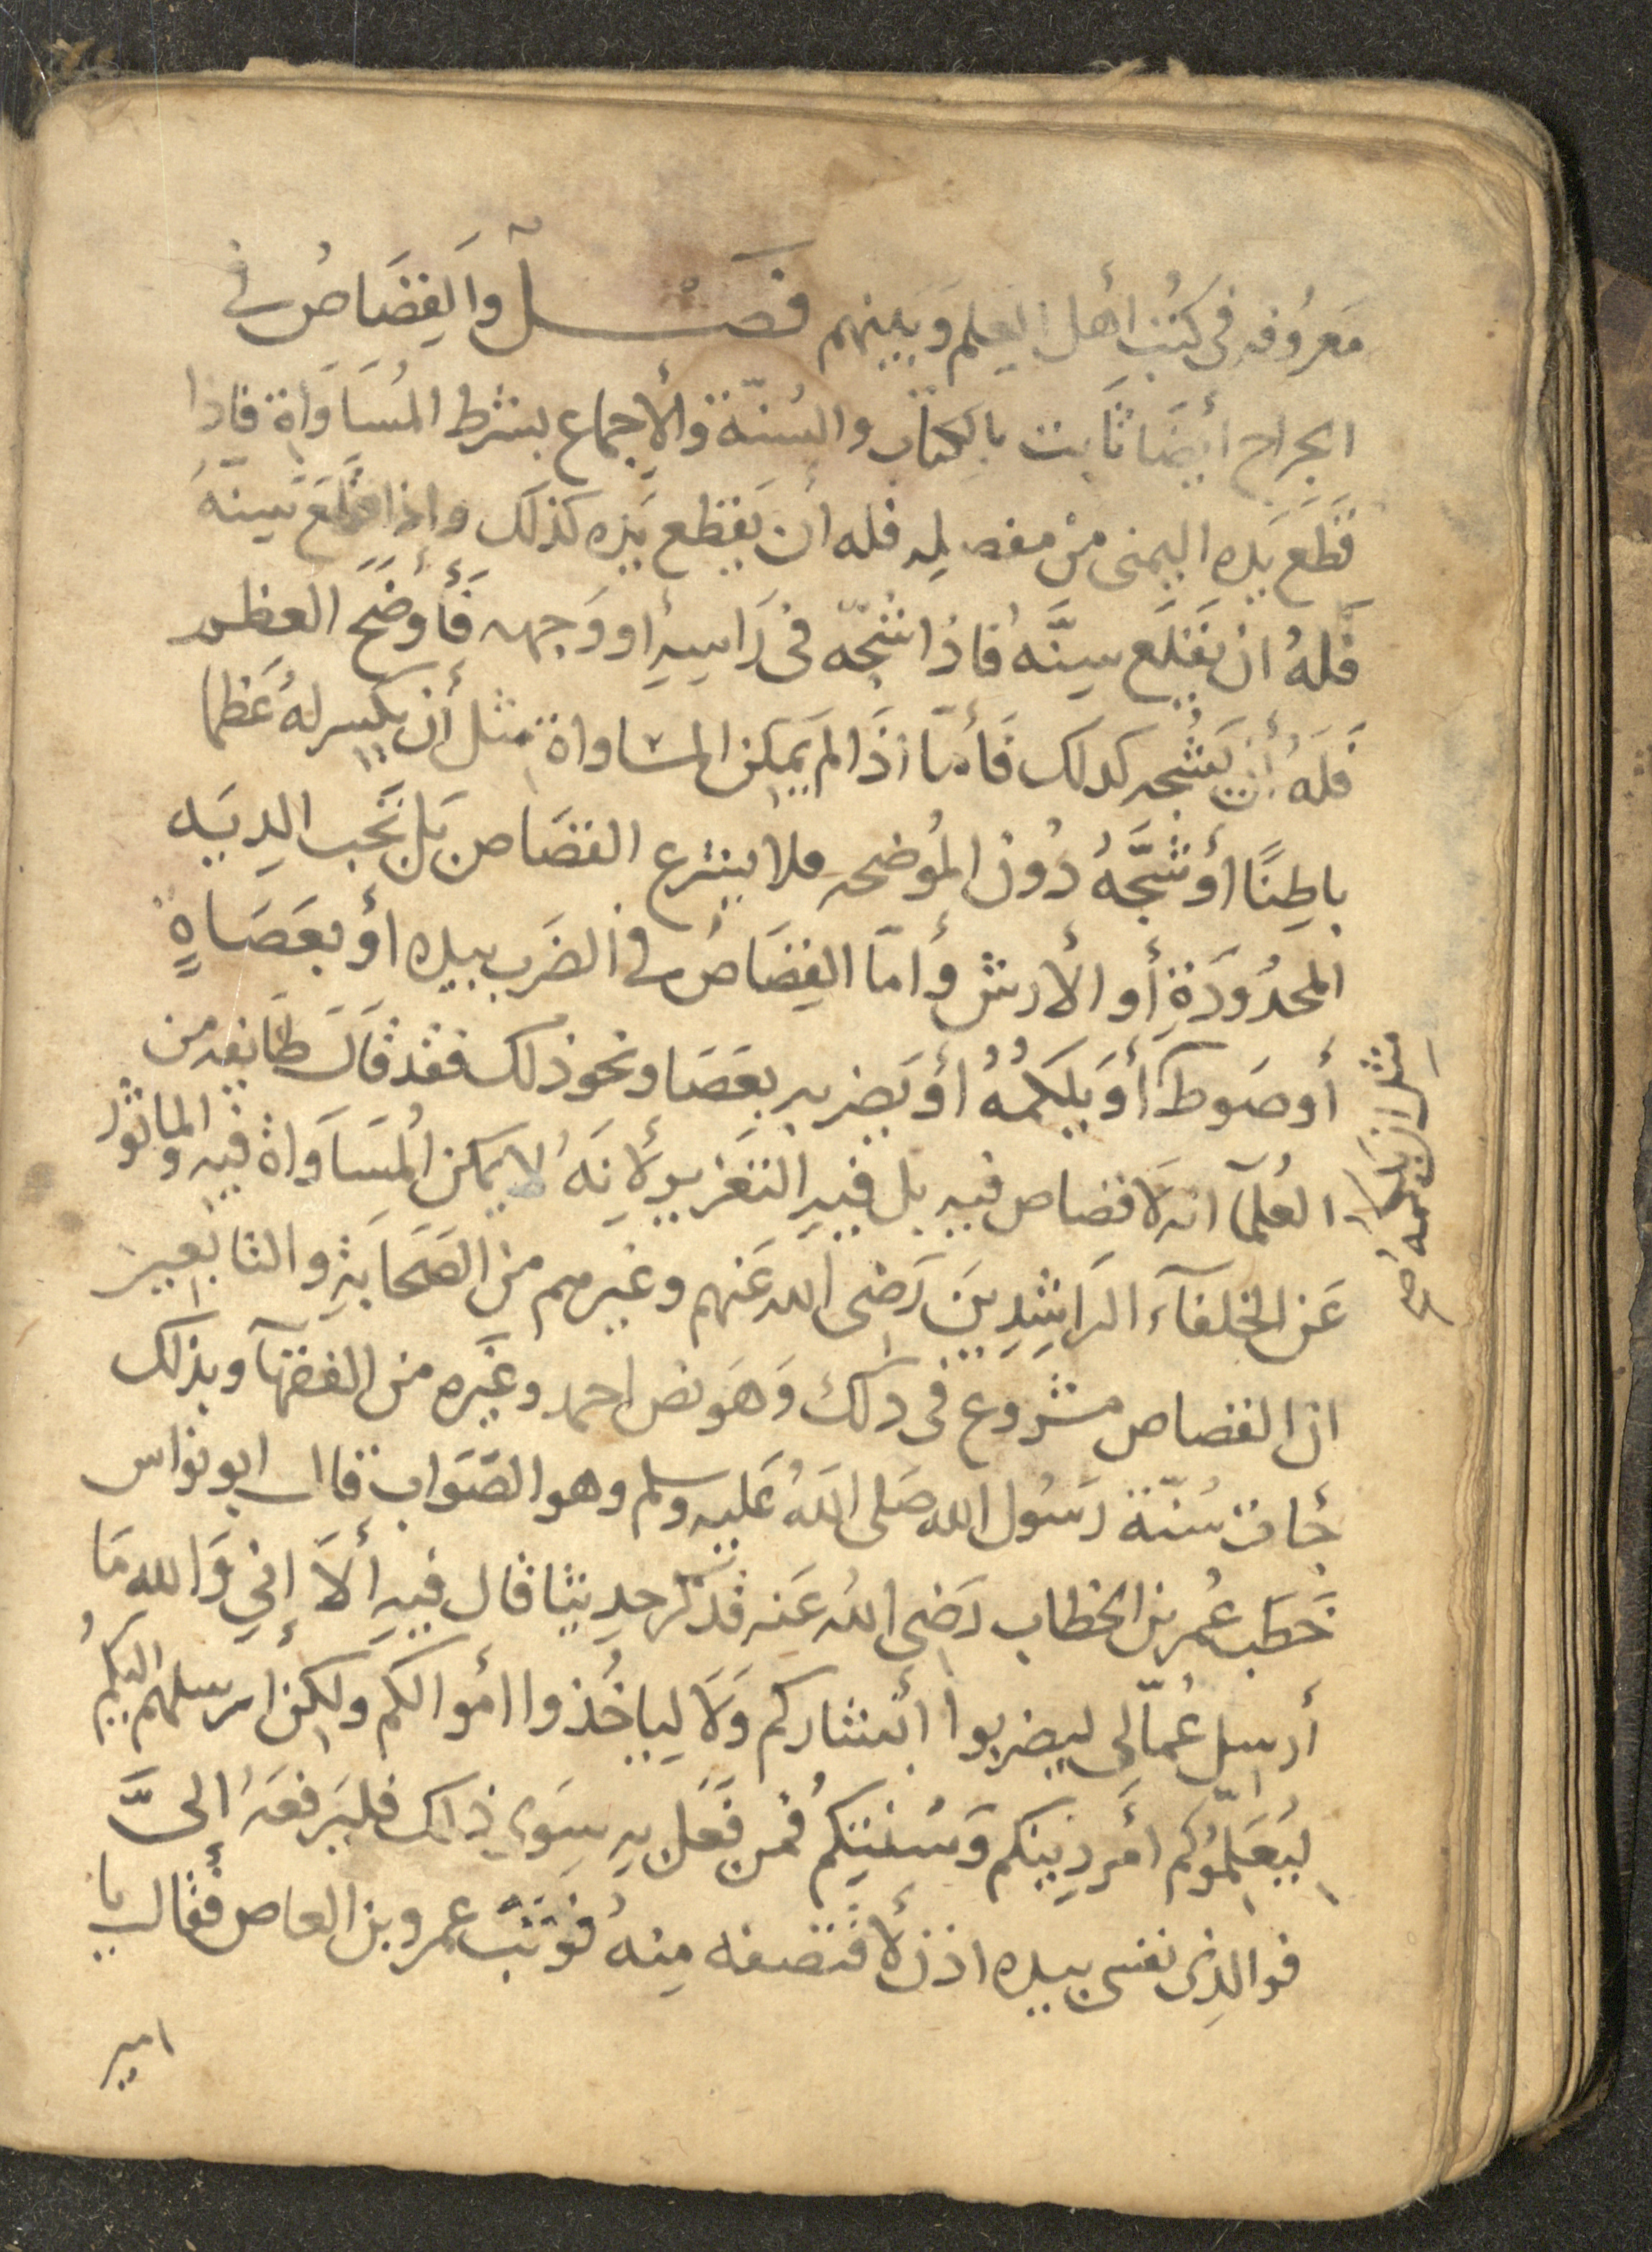 مَعرُوفه فى كتُبِ أهل العِلم وَبَينهم فَصْــل وَالقِصَاصُ فى
الجراح أيضَا ثَابت بالكتاب والسُنّة وَالإجماع بشرط المُسَاوَاة فاذا
قَطَع يَدَه اليمنى مِنْ مفصِلِه فله ان يقطع يَده كذلك واذا قَلَعَ سِنّهُ
فَلهُ ان يَقلَع سِنَّهُ فاذا شَجّه فى رَاسِهِ او وَجهه فَأَوضَحَ العظم
فَلَهُ أن يَشُجه كدلك فَأمّا اذَا لم يمكِن المساواة مثل أن يكسِر لهُ عَظما
باطِنًا أو شَجَّهُ دُون المُوضحه فلا يشرع القصَاص بَل تَجب الدِيَه
المحدُودَةِ أو الأرش وأمّا القِصَاصُ فى الضَرب بيده أو بعَصَاةٍ
أو صَوط أو يَلكمُهُ أو يَضربه بعَصَا ونحو ذلك فقد قَالَت طَائفه من
العُلمآ انه لا قصاص فيه بل فيهِ التعَزير لأنهُ لا يمكن المُسَاوَاة فيه والماثور
عَن الخلفآء الراشِدِينَ رَضى الله عَنهم وغيرهم مِن الصَحَابَةِ والتابعين
ان القصاص مشروع فى ذلك وَهَو نص احمد وغَيره من الفقهآ وبذلك
جات سُنّة رَسُول الله صَلى اللهُ عَليه وسلم وهو الصَوَاب قال ابو نواس
خَطَب عُمر بن الخطاب رَضى اللهُ عَنه فَذكر حديثا قال فيهِ ألاَ إني وَالله مَا
أرسِل عُمّالى ليضربوا ابشاركم وَلاَ ليِاخُذوا اموالكم ولكِن ارسلهم اليكُم
ليُعَلِمّوُكم أمَر دِينكم وَسُننِكُم فمن فَعَل به سِوَى ذلك فليَرفعَه إلىَّ
فوالذِى نفسى بيده اذن لأقتصنه مِنهُ فوَثبَ عمرو بن العاص فقال يا
امير
مثل ان يلطمه او يلكمه صح